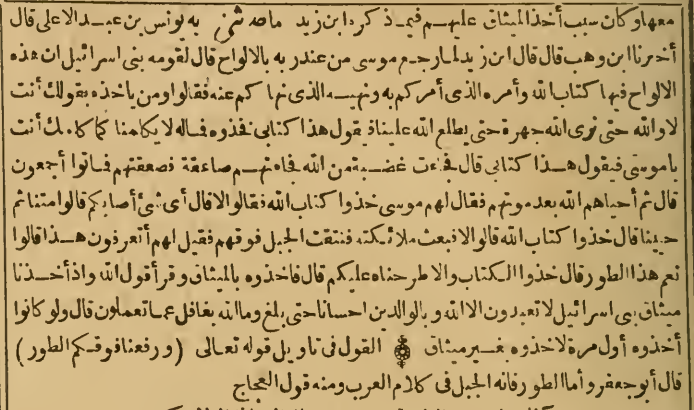 معها وكان سبب أخذ الميثاق عليهم فيما ذكره ابن زيد ما حدثني به يونس بن عبد الاعلى قال
أخبرنا ابن وهب قال قال ابن زيد لما رجع موسى من عند ربه بالالواح قال لقومه بنى اسرائيل ان هذه
الالواح فيها كتاب الله وأمره الذى أمركم به ونهيه الذى نهاكم عنه فقالوا ومن ياخذه بقولك أنت
لا والله حتى نرى الله جهرة حتى يطلع الله علينا فيقول هذا كتابى فخذوه فماله لا يكلمنا كما كلمك أنت
يا موسى فيقول هذا كتابى فخذوه قال فجاءت غضبة من الله فجاءتهم صاعقة فصعقتهم فماتوا أجمعون
قال ثم أحياهم الله بعد موتهم فقال لهم موسى خذوا كتاب الله فقالوا لا قال أى شئ أصابكم قالوا متنا ثم
حيينا قال خذوا كتاب الله قالوا لا فبعث ملائكته فنتقت الجبل فوقهم فقيل لهم أتعرفون هذا قالوا
نعم هذا الطور قال خذوا الكتاب والا طرحناه عليكم قال فاخذوه بالميثاق وقرأ قول الله واذ أخذنا
ميثاق بنى اسرائيل لا تعبدون الا الله وبالوالدين احسانا حتى بلغ وما الله بغافل عما تعملون قال ولو كانوا
أخذوه أول مرة لاخذوه بغير ميثاق القول فى تاويل قوله تعالى (ورفعنا فوقكم الطور)
قال أبو جعفر وأما الطور فانه الجبل فى كلام العرب ومنه قول العجاج